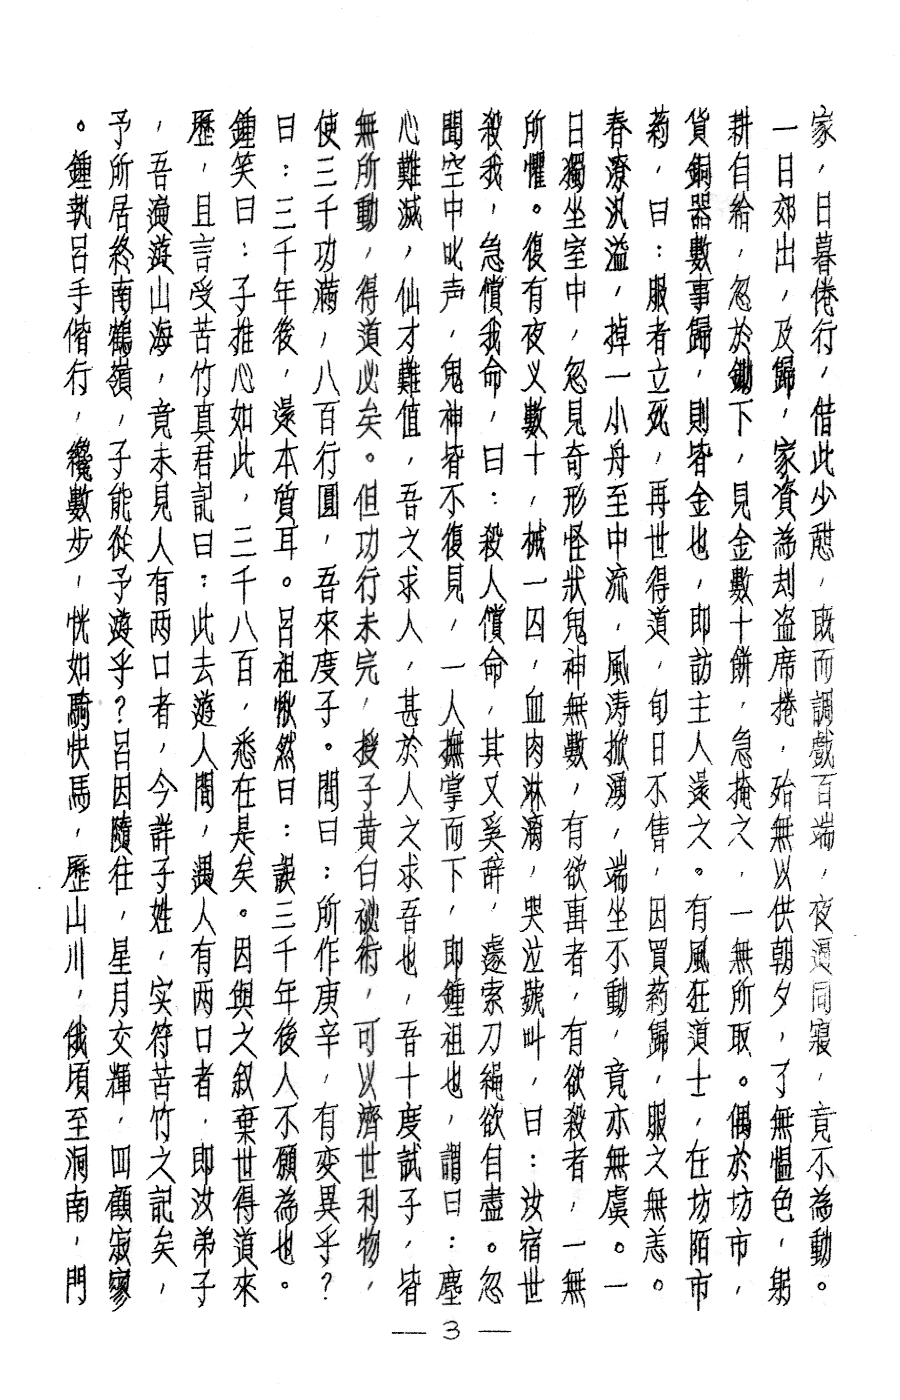 家，日暮倦行，借此少憇，既而調戲百端，夜逼同寢，竟不為動。
一日郊出，及歸，家資為刦盗席捲，殆無以供朝夕，了無愠色，躬
耕自給，忽於鋤下，見金數十餅，急掩之，一無所取。偶於坊市，
貨銅器數事歸，則皆金也，即訪主人還之。有風狂道士，在坊陌市
葯，曰：服者立死，再世得道，旬日不售，因買葯歸，服之無恙。
春潦汎溢，掉一小舟至中流，風涛掀湧，端坐不動，竟亦無虞。一
日獨坐室中，忽見奇形怪狀鬼神無數，有欲击者，有欲殺者，一無
所懼。復有夜义數十，械一囚，血肉淋漓，哭泣號叫，曰：汝宿世
殺我，急償我命，曰：殺人償命，其又奚辞，遽索刀繩欲自盡。忽
聞空中叱声，鬼神皆不復見，一人撫掌而下，即鍾祖也，謂曰：塵
心難滅，仙才難值，吾之求人，甚於人之求吾也，吾十度試子，皆
無所動，得道必矣。但功行未完，授子黄白祕術，可以濟世利物，
使三千功滿，八百行圓，吾來度子。問曰：所作庚辛，有变異乎？
曰：三千年後，還本質耳。呂祖愀然曰：誤三千年後人不願為也。
鍾笑曰：子推心如此，三千八百，悉在是矣。因與之叙棄世得道來
歷，且言受苦竹真君記曰：此去遊人間，遇人有两口者，即汝弟子
，吾遍遊山海，竟未見人有两口者，今詳子姓，实符苦竹之記矣，
予所居終南鶴嶺，子能從予遊乎？呂因隨往，星月交輝，四顧寂寥
。鍾執呂手偕行，纔數步，恍如騎快馬，歷山川，俄頃至洞南，門
— 3 —